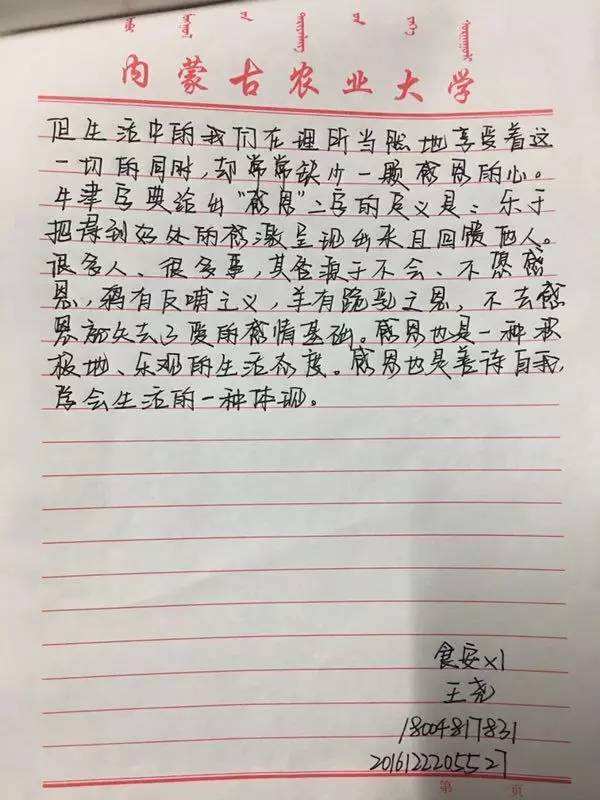 内蒙古农业大学
但生活中的我们在理所当然地享受着这
一切的同时,却常常缺少一颗感恩的心。
牛津字典给出“感恩”二字的定义是:乐于
把得到好处的感激呈现出来且回馈他人。
很多人、很多事,其皆源于不会、不想感
恩,鸦有反哺之义,羊有跪乳之恩,不去感
恩就失去了爱的感情基础。感恩也是一种积
极地、乐观的生活态度。感恩也是善待自我,
学会生活的一种体现。
食安x1
王尧
18004817831
2016122205527
第 页